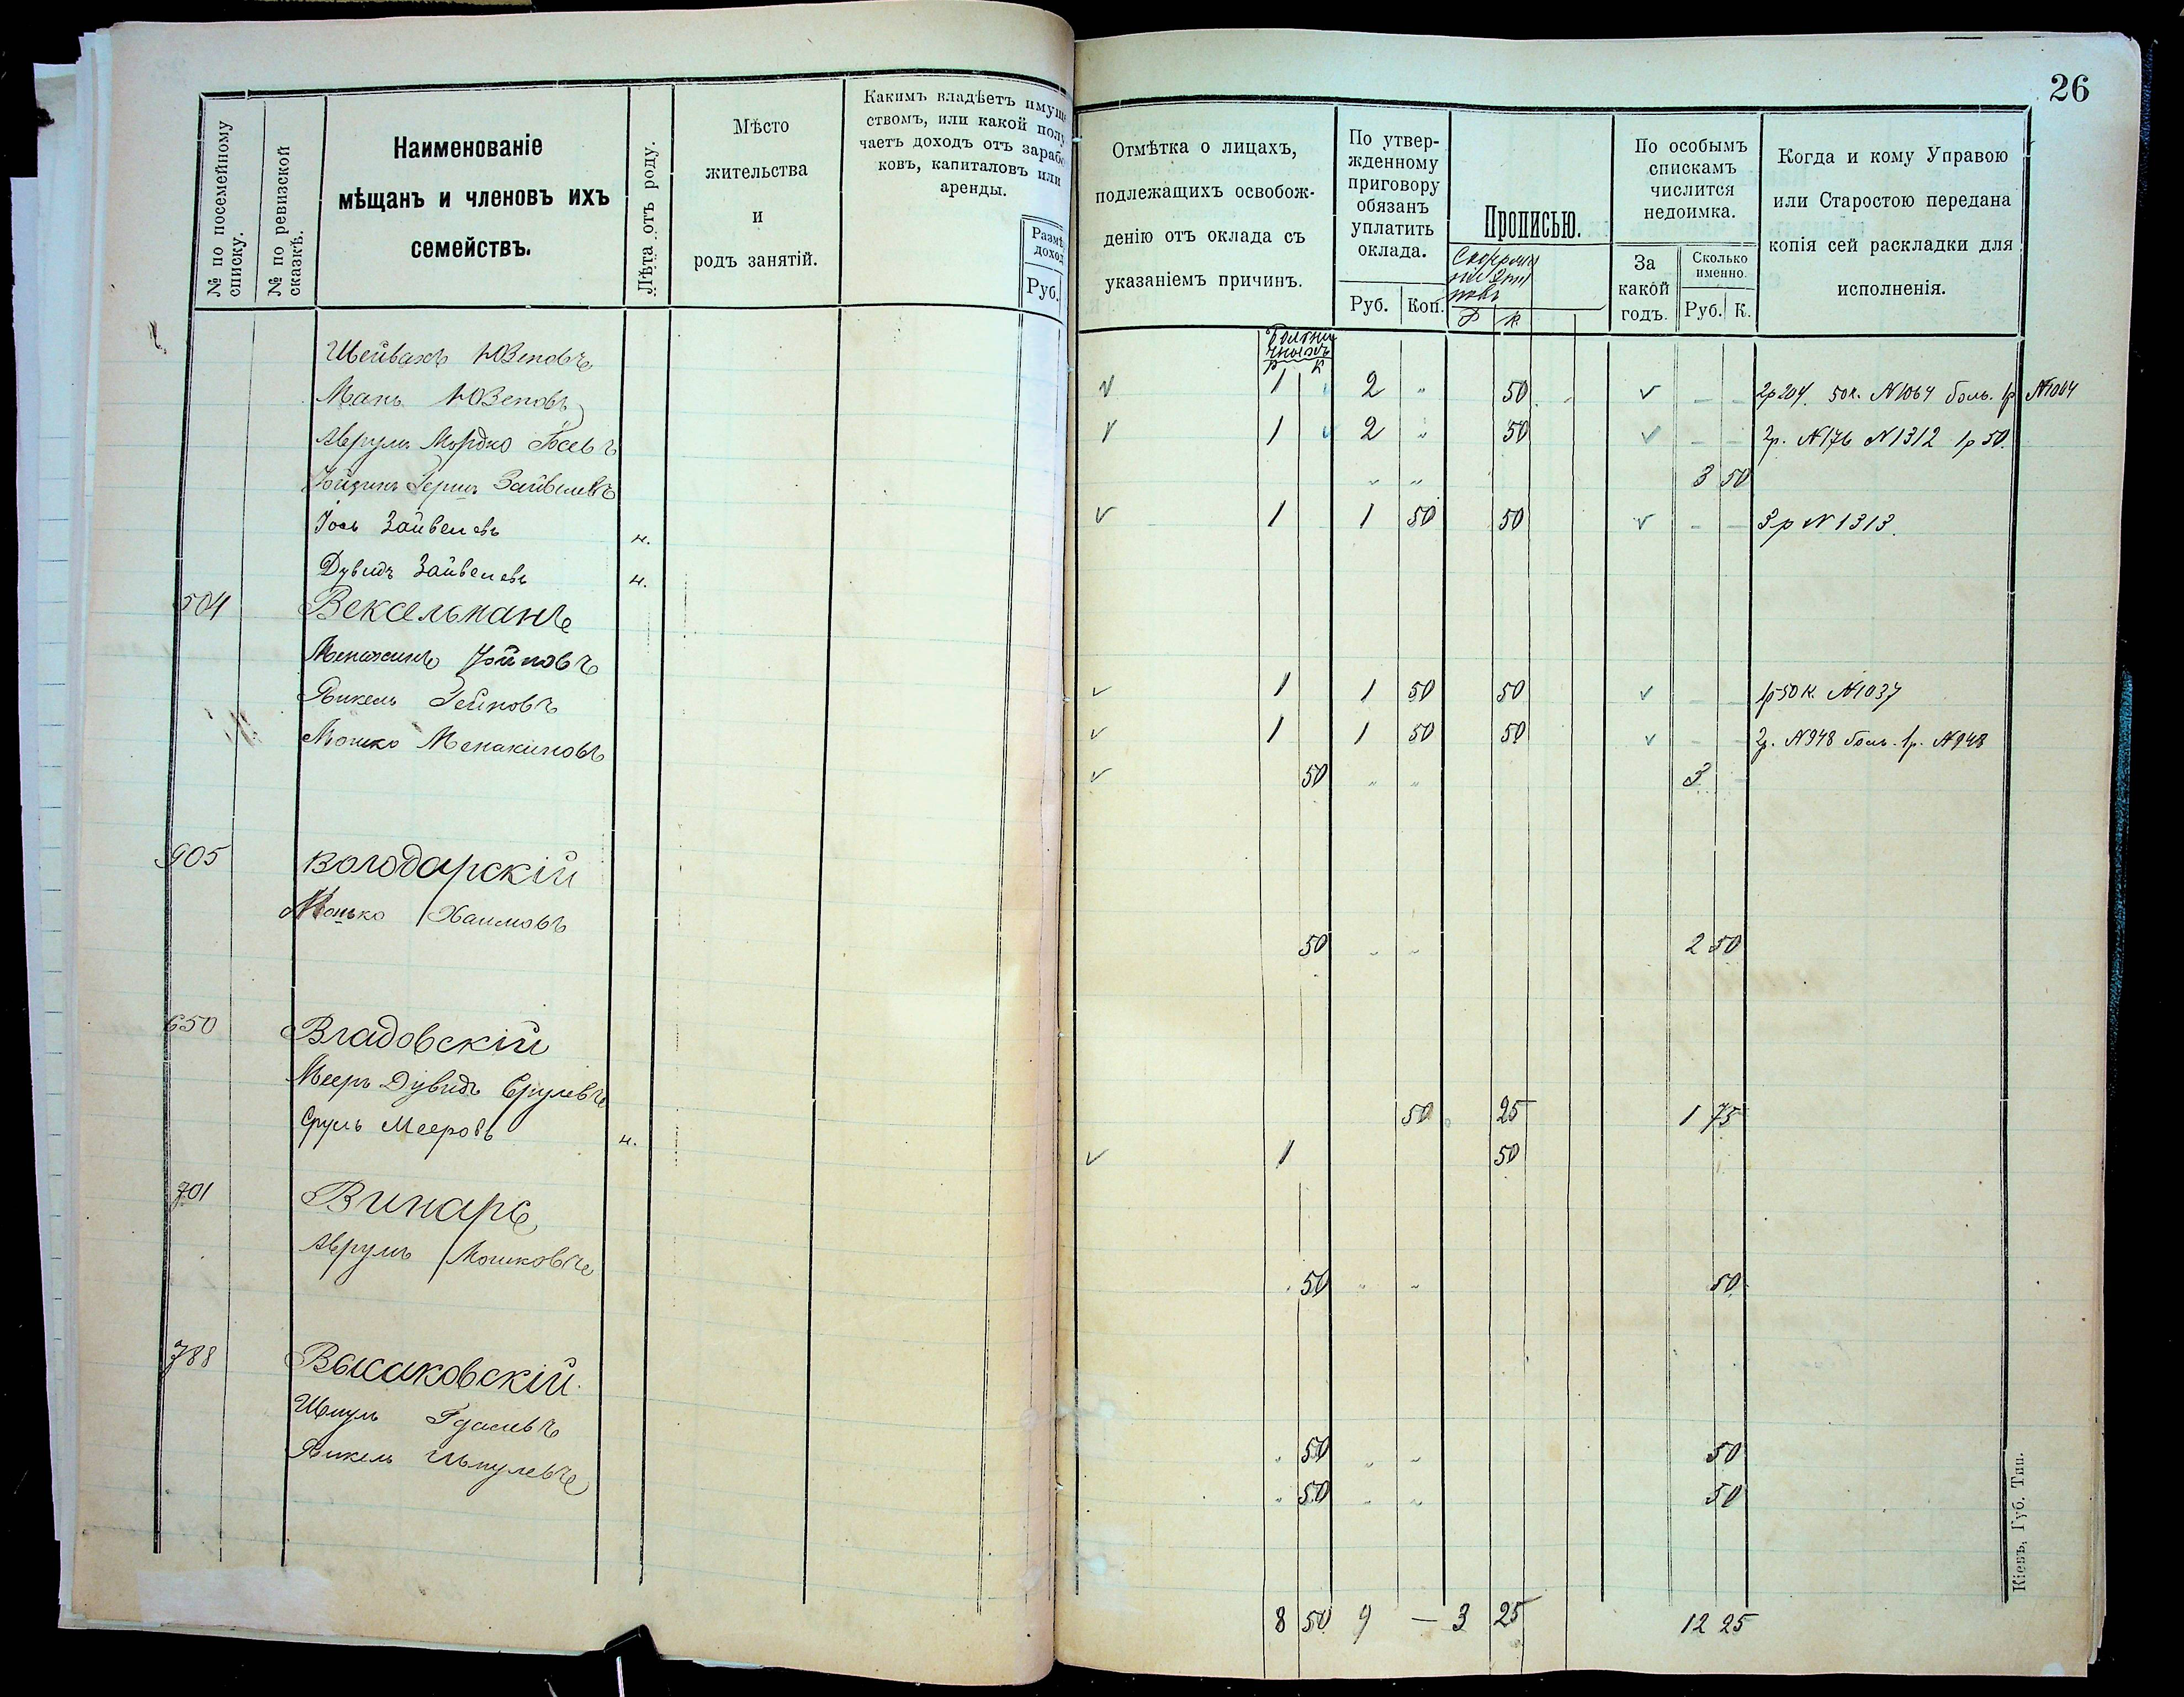 26
№ по посемейному списку.
№ по ревизской сказкѣ.
Наименованіе
мѣщанъ и членовъ ихъ
семействъ.
Лѣта отъ роду.
Мѣсто
жительства
и
родъ занятій.
Какимъ владѣетъ имуще
ствомъ, или какой полу
чаетъ доходъ отъ зарабо
ковъ, капиталовъ или
аренды.
Размѣ
доход
Руб.
Отмѣтка о лицахъ,
подлежащихъ освобож-
денію отъ оклада съ
указаніемъ причинъ.
По утвер-
жденному
приговору
обязанъ
уплатить
оклада.
Руб. Коп.
Прописью.
Р К
По особымъ
спискамъ
числится
недоимка.
За
какой
годъ.
Сколько
именно.
Руб. К.
Когда и кому Управою
или Старостою передана
копія сей раскладки для
исполненія.
Больни
чныхъ
Р К
Шейвахъ Юзеповъ
Мань Юзеповъ
1 2 " 50 – – 2р 204. 50к. №1064 боль. 1р №1064
Аврумъ Мордко Госевъ
1 2 " 50 – – 2р. №176 №1312 1р 50.
Гершъ Зайвелевъ
" " 3 50
Іось Зайвелевъ н.
1 1 50 50 – – 3р №1313.
Дувидъ Зайвелевъ н.
504 Вексельманъ
Менахимъ
Янкель
1 1 50 50 – – 1р 50 к. №1037
Мошко Менахимовъ
1 1 50 50 – – 2р. №948 боль. 1р. №948
50 " " 3
905 Володарскій
Монько Хаимовъ
50 " " 2 50
650 Владовскій
Мееръ Дувидъ Срулевъ
50 25 1 75
Сруль Мееровъ н.
1 50
701 Винаръ
Аврумъ Мошковъ
50 " " 50
788 Высаковскій.
Шмуль Гдалевъ
50 " " 50
Янкель Шмулевъ
50 " " 50
8 50 9 — 3 25 12 25
Кіевъ, Губ. Тип.